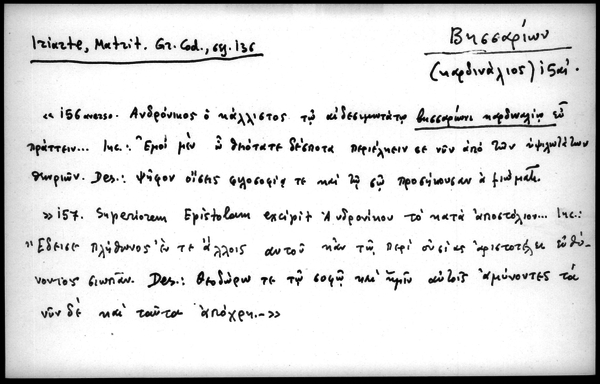 Iriarte, Matrit. Gr. Cod., sg. 136
Βησσαρίων
(καρδινάλιος) 15 αἰ.
« 156 averso. Ἀνδρόνικος ὁ κάλλιστος τῷ αἰδεσιμωτάτῳ βησσαρίωνι καρδιναλίῳ εὖ
πράττειν... Inc.: "Ἐμοὶ μὲν ὦ θειότατε δέσποτα περιέλκειν σε νῦν ἀπὸ τῶν ὑψηλοτάτων
θεωριῶν. Des.: ψῆφον οἴσεις φιλοσοφίᾳ τε καὶ τῷ σῷ προσήκουσαν ἀξιώματι.
» 157. Superiorem Epistolam excipit Ἀνδρονίκου τὸ κατὰ ἀποστόλιον... Inc.:
"Ἔδεισε πλήθωνος ἔν τε ἄλλοις αὐτοῦ κἀν τῷ περὶ οὐσίας ἀριστοτέλει εὐθύ-
νοντος σιωπᾶν. Des.: θεοδώρῳ τε τῷ σοφῷ καὶ ἡμῖν αὐτοῖς ἀμύνοντες τὰ
νῦν δὲ καὶ ταῦτα ἀπόχρη.— »